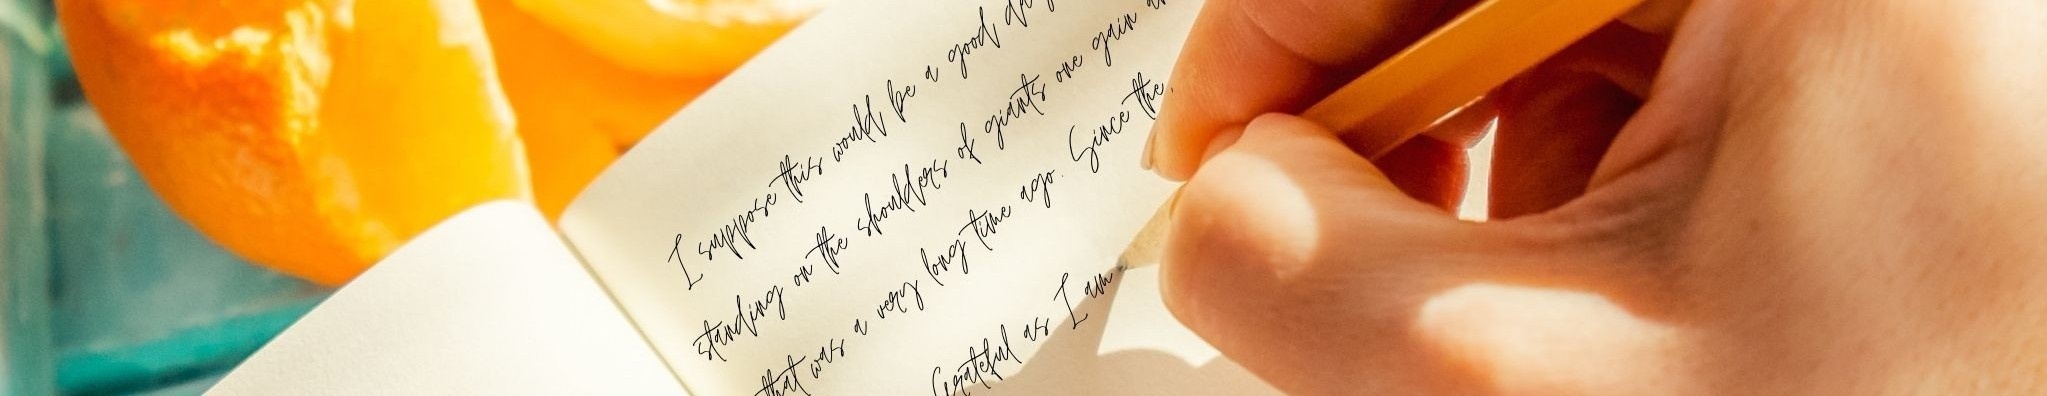 I suppose this would be a good day
standing on the shoulders of giants one gain
that was a very long time ago. Since the
Grateful as I am